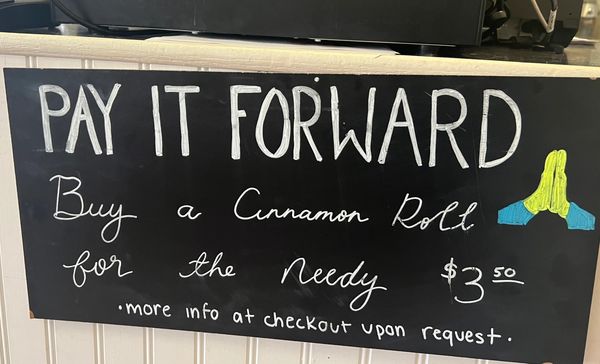 PAY IT FORWARD
Buy a Cinnamon Roll
for the Needy $3.50
•more info at checkout upon request•